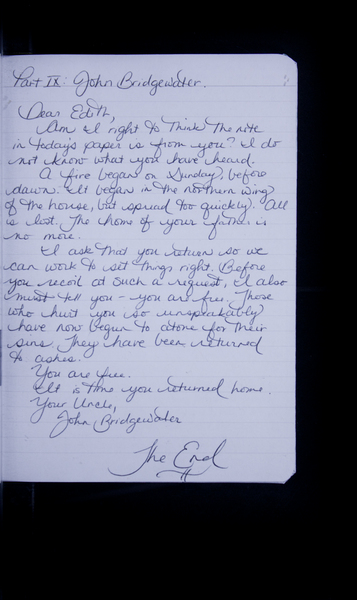 Part IX: John Bridgewater.
Dear Edith,
Am I right to think the note
in today's paper is from you? I do
not know what you have heard.
A fire began on Sunday, before
dawn. It began in the northern wing
of the house, but spread too quickly. All
is lost. The home of your father is
no more.
I ask that you return so we
can work to set things right. Before
you recoil at such a request, I also
must tell you - you are free. Those
who hurt you so unspeakably
have now begun to atone for their
sins. They have been returned
to ashes.
You are free.
It is time you returned home.
Your Uncle,
John Bridgewater
The End